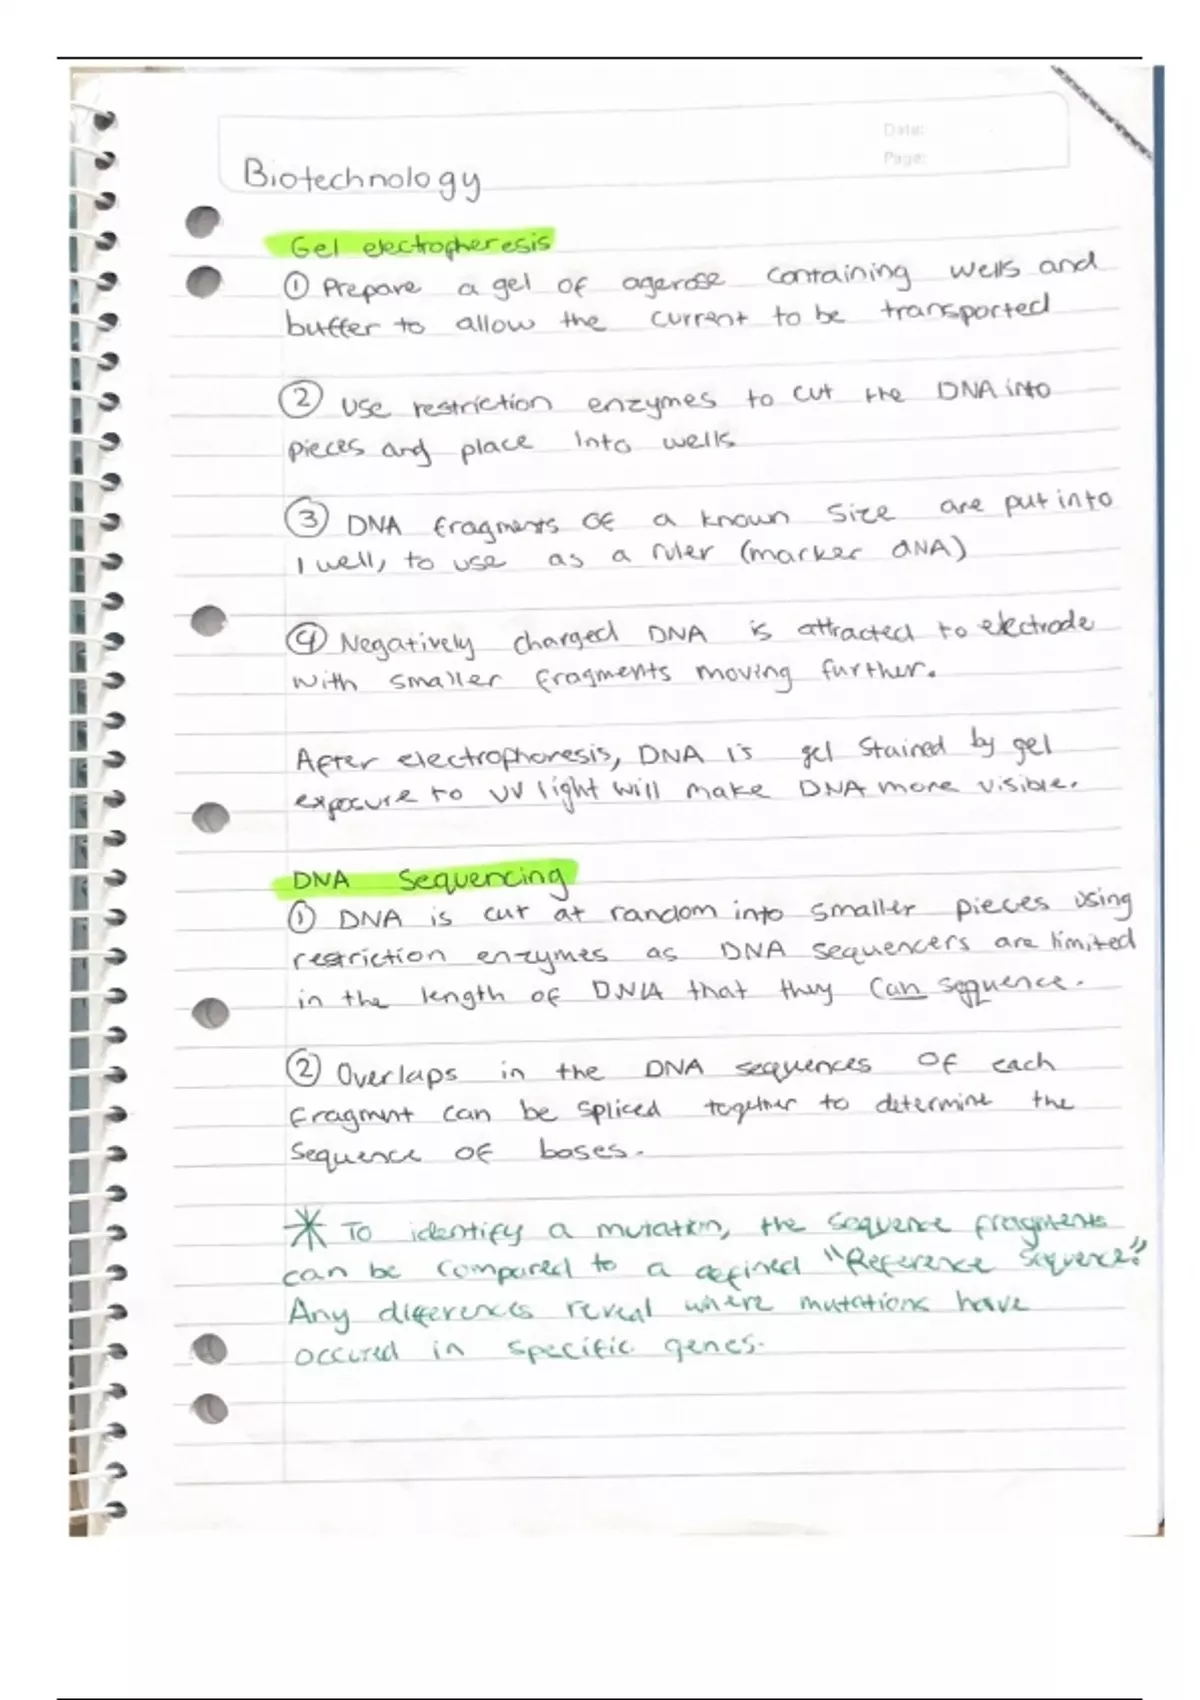 Date:
Page:
Biotechnology
Gel electropheresis
① Prepare a gel of agerose containing wells and
buffer to allow the current to be transported
② Use restriction enzymes to cut the DNA into
pieces and place into wells
③ DNA fragments of a known size are put into
1 well, to use as a ruler (marker dNA)
④ Negatively charged DNA is attracted to electrode
with smaller fragments moving further.
After electrophoresis, DNA is gel stained by gel
exposure to UV light will make DNA more visible.
DNA Sequencing
① DNA is cut at random into smaller pieces using
restriction enzymes as DNA sequencers are limited
in the length of DNA that they can sequence.
② Overlaps in the DNA sequences of each
fragment can be spliced together to determine the
sequence of bases.
* To identify a mutation, the sequence fragments
can be compared to a defined "Reference Sequence".
Any differences reveal where mutations have
occured in specific genes.